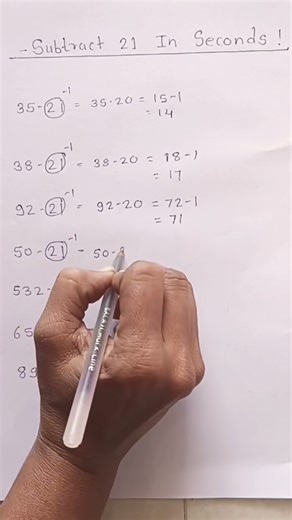 - Subtract 21 In Seconds!
35-21⁻¹ = 35-20 = 15-1
= 14
38-21⁻¹ = 38-20 = 18-1
= 17
92-21⁻¹ = 92-20 = 72-1
= 71
50-21⁻¹ - 50-
532-
65
89